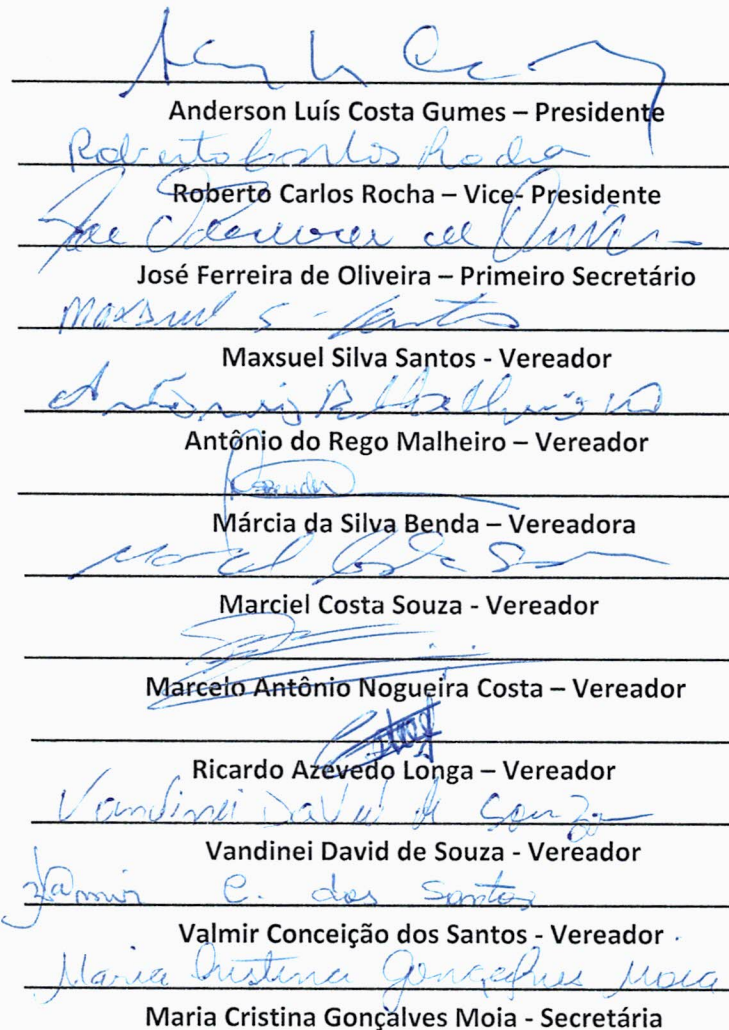 Anderson Luís Costa Gumes – Presidente
Roberto Carlos Rocha
Roberto Carlos Rocha – Vice- Presidente
José Ferreira de Oliveira – Primeiro Secretário
Maxsuel S. Santos
Maxsuel Silva Santos - Vereador
Antônio do Rego Malheiro – Vereador
Márcia da Silva Benda – Vereadora
Marciel Costa Souza
Marciel Costa Souza - Vereador
Marcelo Antônio Nogueira Costa – Vereador
Ricardo Azevedo Longa – Vereador
Vandinei David de Souza
Vandinei David de Souza - Vereador
C. dos Santos
Valmir Conceição dos Santos - Vereador
Maria Cristina Gonçalves Moia
Maria Cristina Gonçalves Moia - Secretária